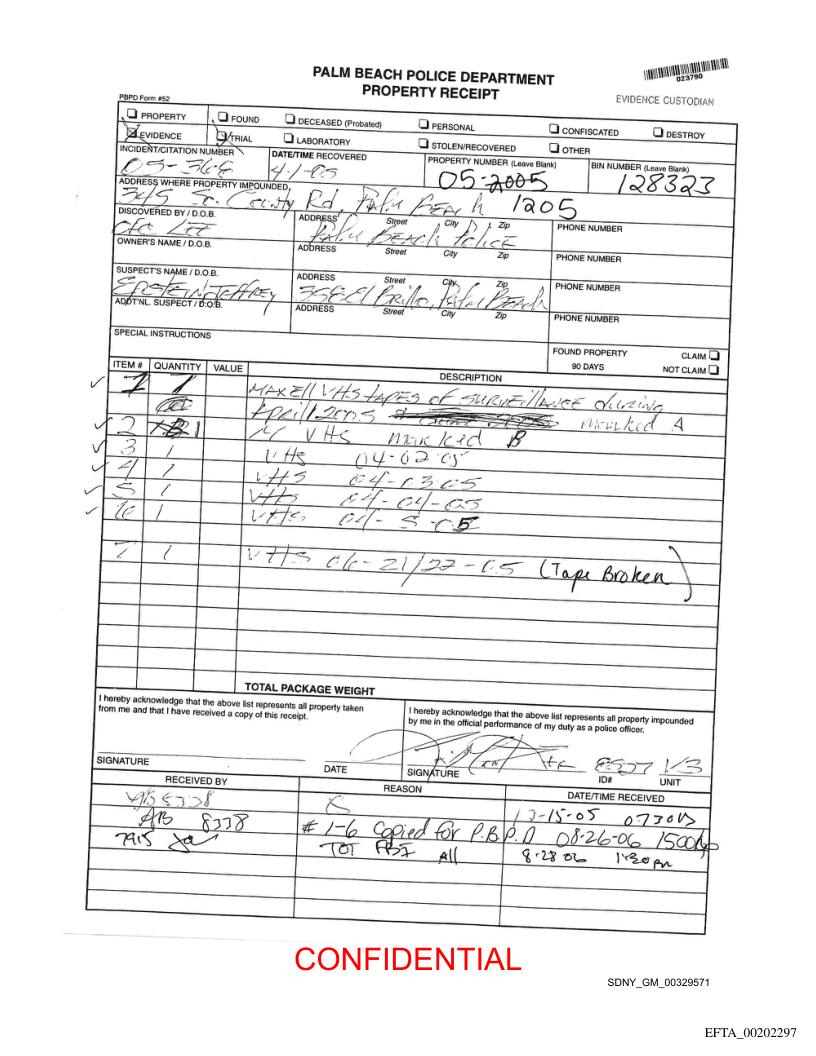 PALM BEACH POLICE DEPARTMENT
PROPERTY RECEIPT
023790
EVIDENCE CUSTODIAN
PBPD Form #52
PROPERTY FOUND DECEASED (Probated) PERSONAL CONFISCATED DESTROY
EVIDENCE TRIAL LABORATORY STOLEN/RECOVERED OTHER
INCIDENT/CITATION NUMBER DATE/TIME RECOVERED PROPERTY NUMBER (Leave Blank) BIN NUMBER (Leave Blank)
05-368 4-1-05 05-2005 128323
ADDRESS WHERE PROPERTY IMPOUNDED
345 So. County Rd, Palm Beach 1205
DISCOVERED BY / D.O.B. ADDRESS Street City Zip PHONE NUMBER
Palm Beach Police
OWNER'S NAME / D.O.B. ADDRESS Street City Zip PHONE NUMBER
SUSPECT'S NAME / D.O.B. ADDRESS Street City Zip PHONE NUMBER
Epstein, Jeffrey 358 El Brillo, Palm Beach
ADDT'NL. SUSPECT / D.O.B. ADDRESS Street City Zip PHONE NUMBER
SPECIAL INSTRUCTIONS
FOUND PROPERTY CLAIM
90 DAYS NOT CLAIM
ITEM # QUANTITY VALUE DESCRIPTION
1 1 MAXELL VHS tapes OF SURVEILLANCE during
April 2005 marked A
2 1 VHS marked B
3 1 VHS 04-02-05
4 1 VHS 04-03-05
5 1 VHS 04-04-05
6 1 VHS 04-5-05
7 1 VHS 06-21/22-05 (Tape Broken)
TOTAL PACKAGE WEIGHT
I hereby acknowledge that the above list represents all property taken
from me and that I have received a copy of this receipt.
I hereby acknowledge that the above list represents all property impounded
by me in the official performance of my duty as a police officer.
SIGNATURE DATE SIGNATURE ID# UNIT
RECEIVED BY REASON DATE/TIME RECEIVED
8338 12-15-05 0730
AB 8338 # 1-6 Copied for P.B.P.D 08-26-06 1500
7915 TOT FBI All 8-28-06 1:30 pm
CONFIDENTIAL
SDNY_GM_00329571
EFTA_00202297